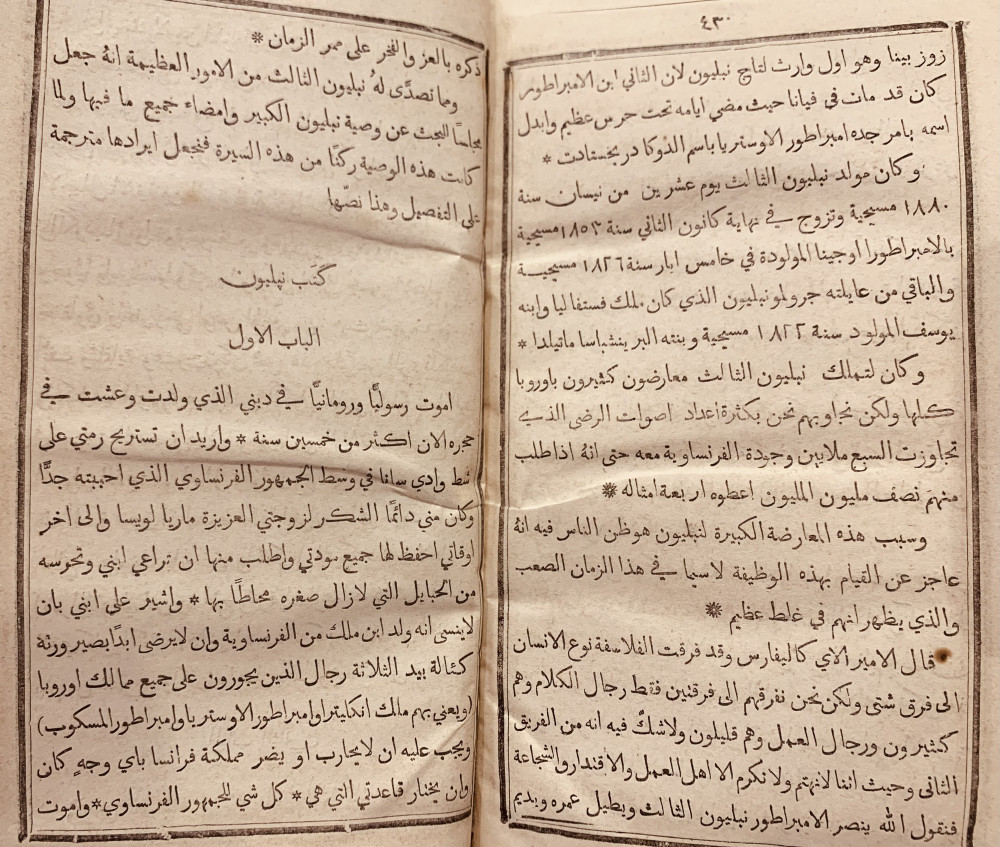 ٤٣٠
زوز بيفا وهو اول وارث لتاج نبليون لان الثاني ابن الامبراطور
كان قد مات في فيانا حيث مضي ايامه تحت حرس عظيم وابدل
اسمه بامر جده امبراطور الاوستريا باسم الدوكا دريخستادت *
وكان مولد نبليون الثالث يوم عشرين من نيسان سنة
١٨٨٠ مسيحية وتزوج في نهاية كانون الثاني سنة ١٨٥٣ مسيحية
بالامبراطورا اوجينا المولودة في خامس ايار سنة ١٨٢٦ مسيحية
والباقي من عايلته جرولمو نبليون الذي كان ملك فستفاليا وابنه
يوسف المولود سنة ١٨٢٢ مسيحية وبنته البرينشباسا ماتيلدا *
وكان لتملك نبليون الثالث معارضون كثيرون باوروبا
كلها ولكن نجاوبهم نحن بكثرة اعداد اصوات الرضى الذي
تجاوزت السبع ملايين وجودة الفرنساوية معه حتى انهُ اذا طلب
منهم نصف مليون المليون اعطوه اربعة امثاله *
وسبب هذه المعارضة الكبيرة لنبليون هو ظن الناس فيه انهُ
عاجز عن القيام بهذه الوظيفة لاسيما في هذا الزمان الصعب
والذي يظهر انهم في غلط عظيم *
قال الامير الاي كاليفارس وقد فرقت الفلاسفة نوع الانسان
الى فرق شتى ولكن نحن نفرقهم الى فرقتين فقط رجال الكلام وهم
كثيرون ورجال العمل وهم قليلون ولاشكَّ فيه انه من الفريق
الثاني وحيث اننا لانهتم ولا نكرم الا اهل العمل والاقتدار والشجاعة
فنقول الله ينصر الامبراطور نبليون الثالث ويطيل عمره ويديم
ذكره بالعز والفخر على ممر الزمان *
ومما تصدَّى لهُ نبليون الثالث من الامور العظيمة انهُ جعل
مجلسًا للبحث عن وصية نبليون الكبير وامضاء جميع ما فيها ولما
كانت هذه الوصية ركنًا من هذه السيرة فنجعل ايرادها مترجمة
على التفصيل وهذا نصّها
كَتَب نپليون
الباب الاول
اموت رسوليًّا ورومانيًّا في ديني الذي ولدت وعشت في
حجره الان اكثر من خمسين سنة * واريد ان تستريح رمتي على
شط وادي سانا في وسط الجمهور الفرنساوي الذي احببته جدًّا
وكان مني دائمًا الشكر لزوجتي العزيزة ماريا لويسا والى اخر
اوقاتي احفظ لها جميع مودتي واطلب منها ان تراعي ابني وتحوسه
من الحبايل التي لازال صغره محاطًا بها * واشير على ابني بان
لاينسى انه ولد ابن ملك من الفرنساوية وان لايرضى ابدًا بصير ورته
كـئالة بيد الثلاثة رجال الذين يجورون على جميع ممالك اوروبا
(ويعني بهم مالك انكليترا وامبراطور الاوستريا وامبراطور المسكوب)
ويجب عليه ان لايحارب او يضر مملكة فرانسا باي وجهٍ كان
وان يختار قاعدتي التي هي * كل شي للجمهور الفرنساوي * واموت